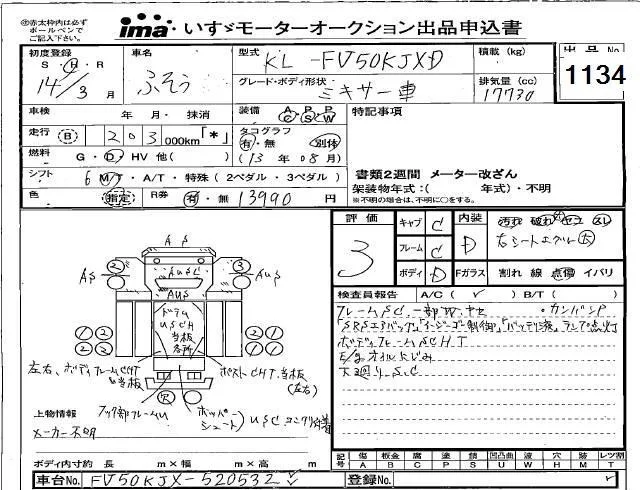 ㊟赤太枠内は必ず
ボールペンで
ご記入下さい。
ima いすゞモーターオークション出品申込書
初度登録 S・H・R 14/3 月
車名 ふそう
型式 KL-FV50KJXD
積載 (kg)
出品No 1134
グレード・ボディ形状 ミキサー車
排気量 (cc) 17730
車検 年 月・抹消
装備 A/C P/S P/W
特記事項
走行 B 203 000km「*」
タコグラフ 有・無 別体
燃料 G・D・HV 他( )
(13年08月)
シフト 6 MT・A/T・特殊(2ペダル・3ペダル)
書類2週間 メーター改ざん
架装物年式:( 年式)・不明
※不明の場合は、不明に○をする。
色 指定 R券 有・無 13990 円
評価 3
キャブ C
フレーム C
ボディ D
内装 D
汚れ 破れ ヤコゲ スレ
右シートエグレ大
Fガラス 割れ 線 点傷 イバリ
検査員報告 A/C( ✓ ) B/T( )
フレームSC,一部凹
ボディフレームSCHT
E/gオイルにじみ
下廻りS.C
AS
AS 2 3 AUS
AUSC
AUS
USCH
当板
各所
1 2 1 2
2 3 2 3
左右、ボディフレームCHT
当板
ポストCHT.当板
(左右)
欠
フック部フレームU
ホッパー
シュート
USC コンクリ付着
上物情報
メーカー不明
ボディ内寸約 長 m×幅 m×高 m
記号 傷A 板金B 腐C 塗P 錆S 凹凸曲U 波W 穴H 跡M レツ割T
車台No. FV50KJX-520532
登録No.